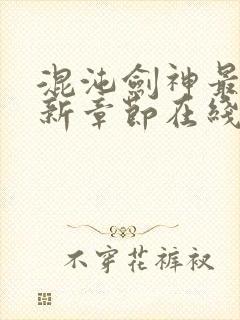 混沌劍神最
新章節在綫
不穿花裤衩